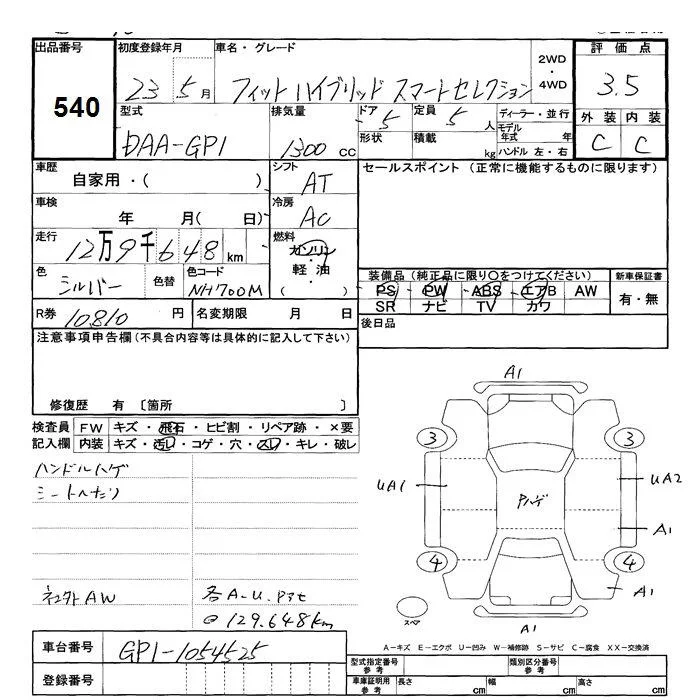 出品番号 初度登録年月 車名・グレード 2WD・4WD 評価点
540 23 5月 フィットハイブリッド スマートセレクション 3.5
型式 排気量 ドア 5 定員 5人 ディーラー・並行 外装 内装
DAA-GP1 1300cc 形状 積載 kg モデル年式 年 ハンドル 左・右 C C
車歴 シフト セールスポイント (正常に機能するものに限ります)
自家用・( ) AT
車検 冷房
年 月( 日) AC
走行 燃料
12万9千648km ガソリン・軽油 ( )
色 色替 色コード 装備品 (純正品に限り○をつけてください) 新車保証書
シルバー NH700M PS PW ABS エアB AW 有・無
SR ナビ TV カワ
R券 10810円 名変期限 月 日 後日品
注意事項申告欄(不具合内容等は具体的に記入して下さい)
修復歴 有 〔箇所 〕
検査員 FW キズ・飛石・ヒビ割・リペア跡・×要
記入欄 内装 キズ・汚れ・コゲ・穴・スレ・キレ・破レ
ハンドルハゲ
シートヘタリ
AW
各A-U.
@129.648km
A1
3 3
UA1 Pハゲ UA2
A1
4 4
A1
スペア
A1
A-キズ E-エクボ U-凹み W-補修跡 S-サビ C-腐食 XX-交換済
車台番号 GP1-1054525
登録番号
型式指定番号 参考 類別区分番号 参考
車庫証明用 参考 長さ cm 幅 cm 高さ cm